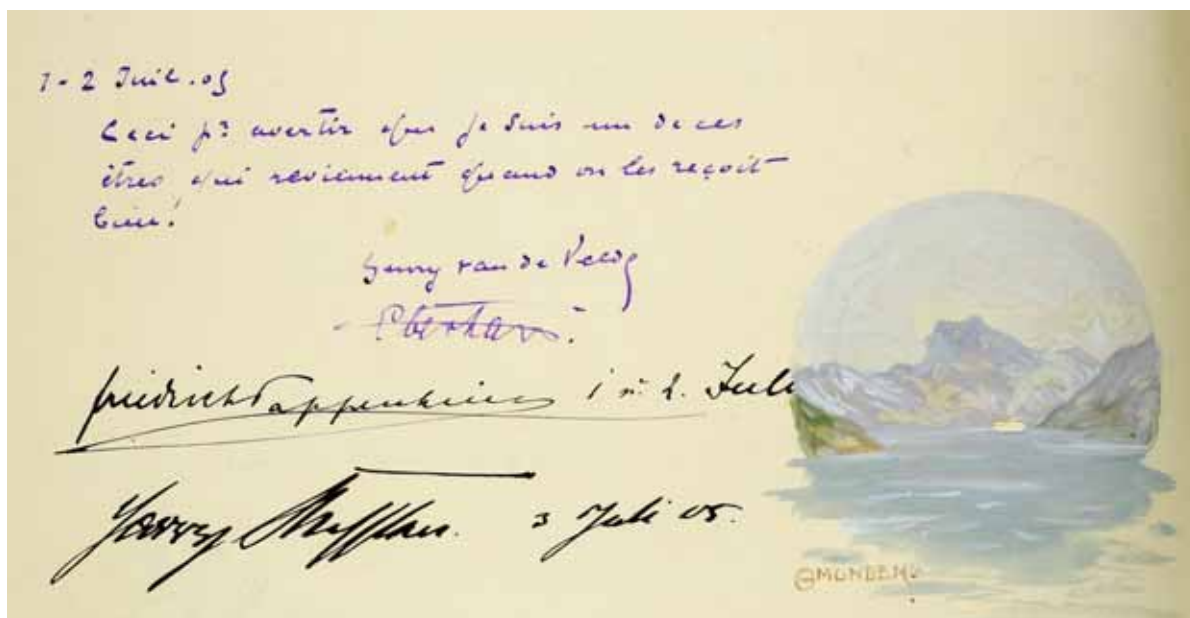 1-2 Juil. 05
Ceci pr avertir que je suis un de ces
êtres qui reviennent quand on les reçoit
bien!
Henry van de Velde
Friedrich Pappenheim 1 u. 2. Juli
Harry 3 Juli 05.
GMUNDEN